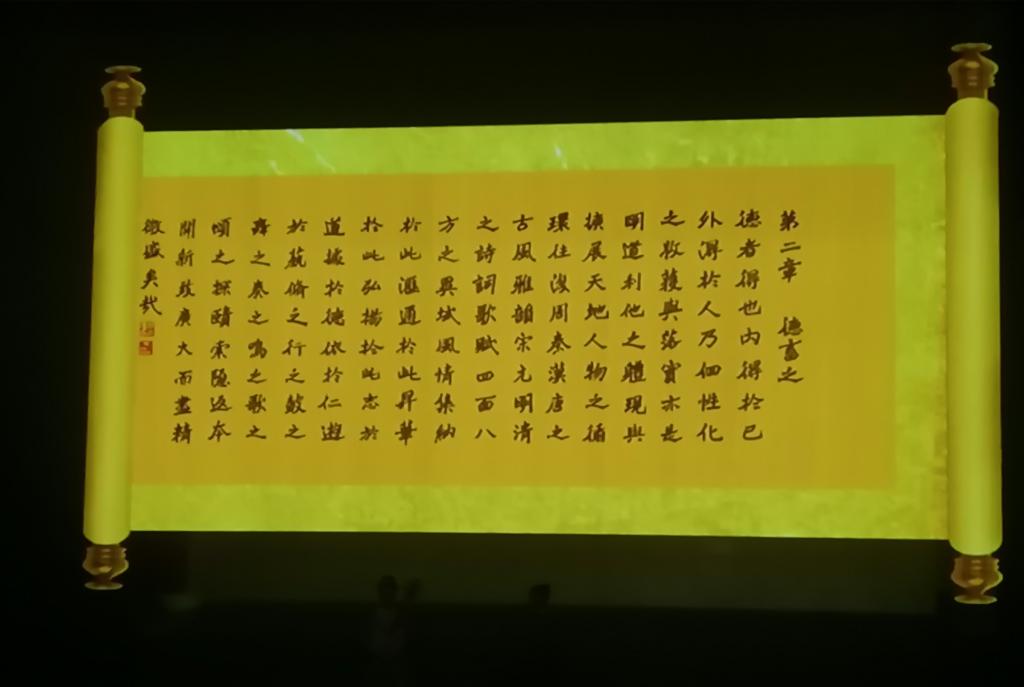 第二章 德畜之
德者得也内得於己
外淂於人乃個性化
之收蒦與落實亦是
明道利他之體現與
擴展天地人物之循
環往復周秦漢唐之
古風雅韻宋元明清
之詩詞歌賦四面八
方之異域風情集納
於此滙通於此昇華
於此弘揚於此志於
道據於德依於仁遊
於藝脩之行之敩之
舞之奏之鳴之歌之
頌之探賾索隐返本
開新致廣大而盡精
微盛矣哉